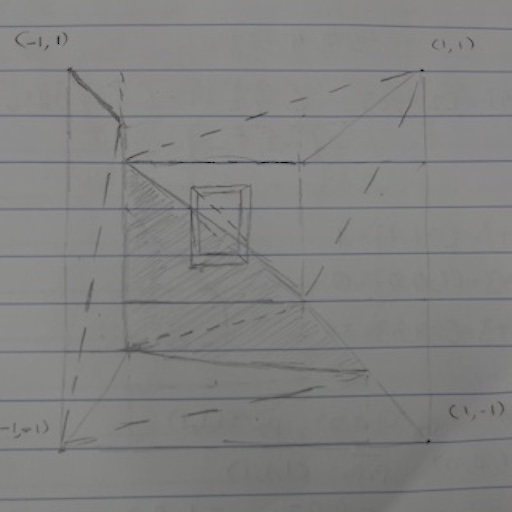 (-1, 1)
(1, 1)
(1, -1)
-1, -1)